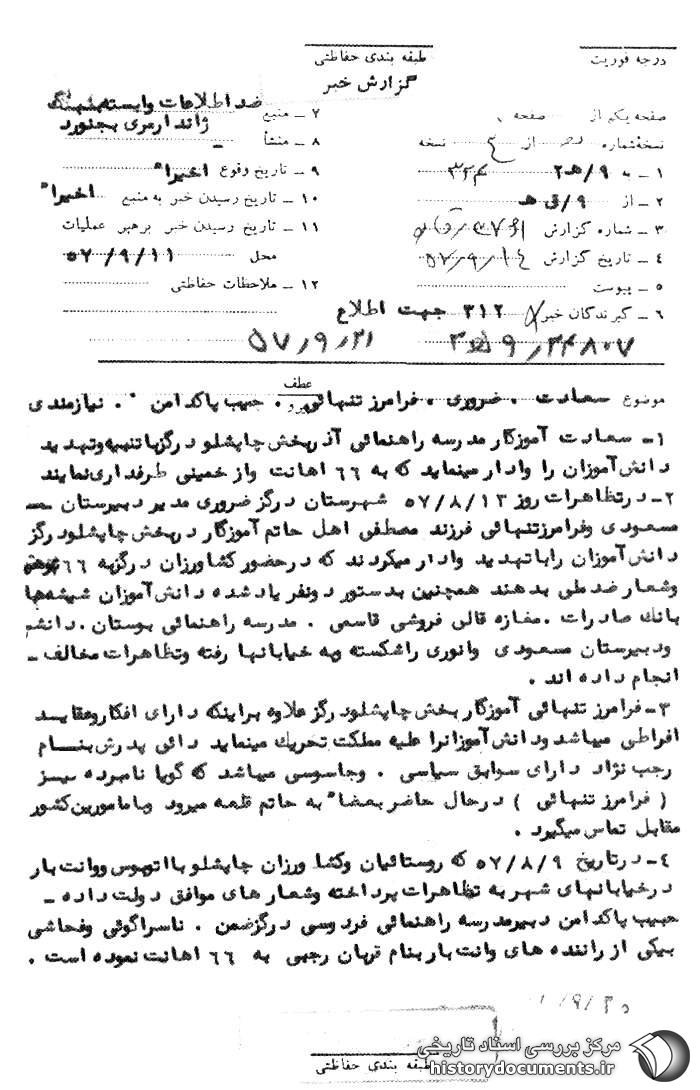 درجه فوریت
طبقه بندی حفاظتی
گزارش خبر
صفحه یکم از صفحه
نسخه شماره از نسخه
۱ ـ به ۹/هـ۲ ۳۲۴
۲ ـ از ۹/ق هـ
۳ ـ شماره گزارش
۴ ـ تاریخ گزارش ۵۷/۹/۱۴
۵ ـ پیوست
۶ ـ گیرندگان خبر ۳۱۲ جهت اطلاع
۷ ـ منبع ضد اطلاعات وابسته بهنگ
ژاندارمری بجنورد
۸ ـ منشأ ـ
۹ ـ تاریخ وقوع اخیرا"
۱۰ ـ تاریخ رسیدن خبر به منبع اخیرا"
۱۱ ـ تاریخ رسیدن خبر برهبر عملیات
محل ۵۷/۹/۱۱
۱۲ ـ ملاحظات حفاظتی
۵۷/۹/۲۱
عطف
موضوع سعادت . ضروری . فرامرز تنهائی . حبیب پاکدامن . نیازمندی
۱ـ سعادت آموزگار مدرسه راهنمائی آذربخش چاپشلو درگزباتنبیه وتهدید
دانش آموزان را وادار مینماید که به ۶۶ اهانت واز خمینی طرفداری نمایند
۲ـ درتظاهرات روز ۵۷/۸/۱۳ شهرستان درگز ضروری مدیر دبیرستان
مسعودی وفرامرزتنهائی فرزند مصطفی اهل حاتم آموزگار دربخش چاپشلودرگز
دانش آموزان راباتهدید وادار میکردند که درحضور کشاورزان درگزبه ۶۶ توهین
وشعار ضدملی بدهند همچنین بدستور دونفر یادشده دانش آموزان شیشه‌ها
بانك صادرات . مغازه قالی فروشی قاسمی . مدرسه راهنمائی بوستان . دانش
ودبیرستان مسعودی وانوری راشکسته وبه خیابانها رفته وتظاهرات مخالف ـ
انجام داده اند .
۳ـ فرامرز تنهائی آموزگار بخش چاپشلودرگز علاوه براینکه دارای افکاروعقایسد
افراطی میباشد ودانش آموزانرا علیه مملکت تحریك مینماید دائی پدرش بنسام
رجب نژاد دارای سوابق سیاسی . وجاسوسی میباشد که گویا نامبرده سیسز
( فرامرز تنهائی ) درحال حاضر بعضا" به حاتم قلعه میرود وبامامورین کشور
مقابل تماس میگیرد .
۴ـ درتاریخ ۵۷/۸/۹ که روستائیان وکشا ورزان چاپشلو بااتوبوس ووانت بار
درخیابانهای شهر به تظاهرات پرداخته وشعار های موافق دولت داده ـ
حبیب پاکدامن دبیرمدرسه راهنمائی فردوسی درگزضمن . ناسزاگوئی وفحاشی
بیکی از راننده های وانت بار بنام قربان رجبی به ۶۶ اهانت نموده است .
طبقه بندی حفاظتی
مرکز بررسی اسناد تاریخی
historydocuments.ir